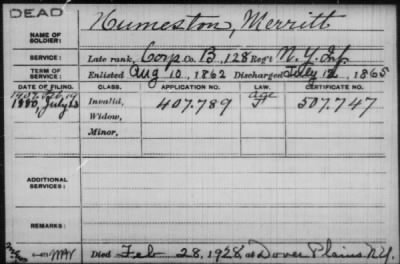 DEAD
NAME OF SOLDIER: Humeston, Merritt
SERVICE: Late rank, Corp Co. B, 128 Reg't N.Y. Inf
TERM OF SERVICE: Enlisted Aug 10, 1862 Discharged July 12, 1865
DATE OF FILING. CLASS. APPLICATION NO. LAW. CERTIFICATE NO.
1907, Feb
1880, July 23 Invalid, 407.789 Age 507.747
Widow,
Minor,
ADDITIONAL SERVICES:
REMARKS:
Died Feb 28, 1928, at Dover Plains N.Y.